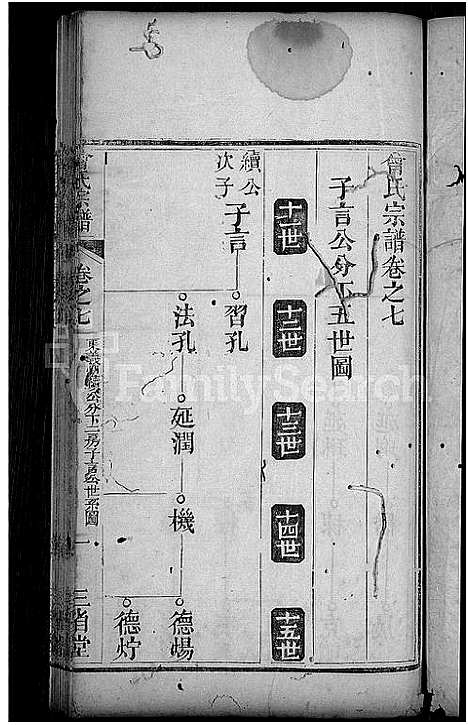 曾氏宗譜卷之七
子言公分下五世圖
十一世
十二世
十三世
十四世
十五世
續公
次子
子言
習孔
法孔
延潤
機
德暘
德炉
曾氏宗譜
卷之七
公分下二房子言公世系圖
一
三省堂
FamilySearch